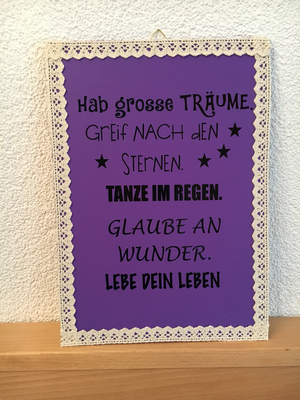 Hab grosse TRÄUME.
Greif NACH dEN
STERNEN.
TANZE IM REGEN.
GLAUBE AN
WUNDER.
LEBE DEIN LEBEN